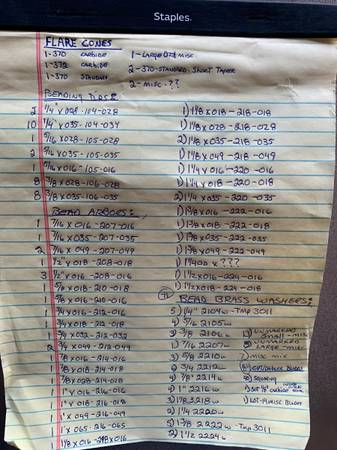 Staples.
FLARE CONES
1-370 CARBIDE
1-37½ CARBIDE
1-370 STANDARD
1-LARGE OD MISC
2-370-STANDARD SHORT TAPER
2-MISC-??
BEADING DIES:
2 1/4" x 028-104-028
10 1/4" x 035-104-034
1 5/16 x 028-105-028
2 5/16 x 035-105-035
1 5/16 x 016-105-016
8 3/8 x 028-106-028
8 3/8 x 035-106-035
BEAD ARBORS:
1 7/16 x 016-207-016
1 7/16 x 035-207-035
2 7/16 x 049-207-049
1 1/2" x 018-208-018
3 1/2" x 016-208-016
5/8 x 018-210-018
1 5/8 x 016-210-016
3/4 x 016-212-016
1 3/4 x 018-212-018
1 3/4 x 032-212-032
2 3/4 x 049-212-049
1 7/8 x 016-214-016
1 7/8 x 018-214-018
1 7/8 x 028-214-028
1 1" x 016-216-016
1 1" x 018-216-018
1 1" x 049-216-049
1 1" x 065-216-065
1 1/8 x 016-218-016
1) 1 1/8 x 018-218-018
1) 1 1/8 x 028-218-028
2) 1 1/8 x 035-218-035
1) 1 1/8 x 049-218-049
1) 1 1/4 x 016-220-016
1) 1 1/4 x 018-220-018
2) 1 1/4 x 035-220-035
1) 1 3/8 x 016-222-016
1) 1 3/8 x 018-222-018
1) 1 3/8 x 035-222-035
1) 1 3/8 x 049-222-049
1) 1 1/4 OD x ???
1) 1 1/2 x 016-224-016
1) 1 1/2 x 018-224-018
BEAD BRASS WASHERS:
5) 1/4" 2104W-TMP 3011
4) 5/16 2105W
3) 3/8 2106W
1) 7/16 2207W
3) 5/8 2210W
2) 3/4 2212W
3) 7/8" 2214W
2) 1" 2216W
1) 1 1/8 2218W
2) 1 1/4 2220W
5) 1 3/8 2222W-TMP 3011
2) 1 1/2 2224W
UNMARKED
SMALL-MISC
UNMARKED
LARGE-MISC
7) MISC MIX
1) LOT-MISC BUSHY